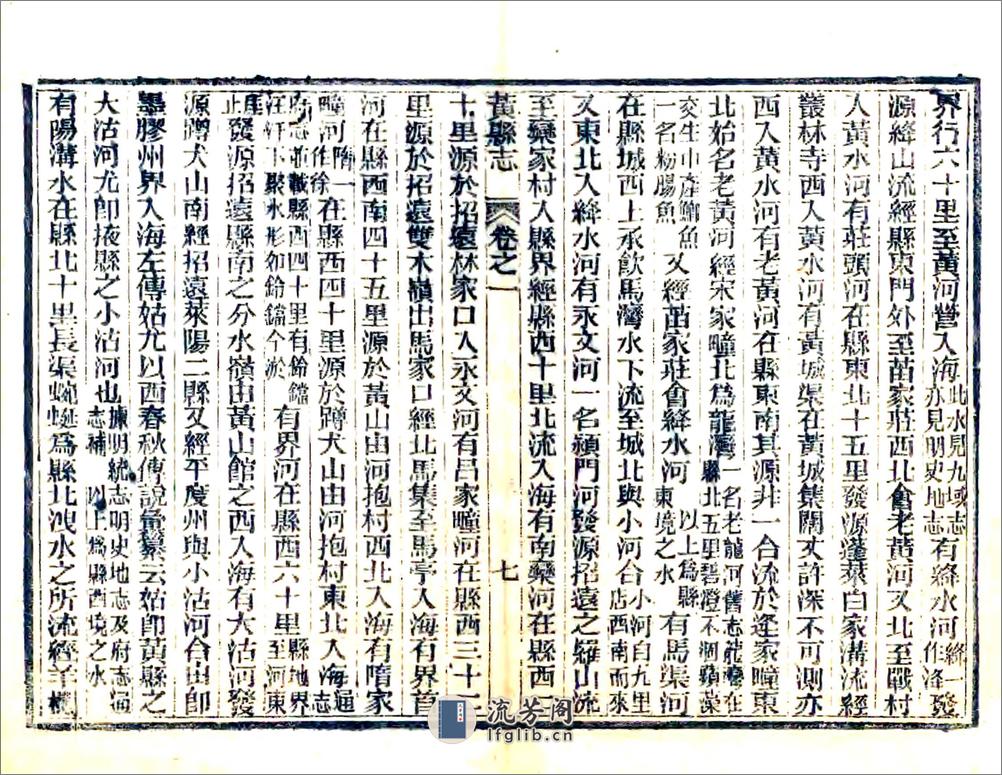 界行六十里至黃河營入海此水見九域志亦見明史地志有絳水河絳一作洚發
源絳山流經縣東門外至苗家莊西北會老黃河又北至戰村
入黃水河有莊頭河在縣東北十五里發源蓬萊白家溝流經
叢林寺西入黃水河有黃城渠在黃城集闊丈許深不可測亦
西入黃水河有老黃河在縣東南其源非一合流於逄家疃東
北始名老黃河經宋家疃北爲龍灣一名老龍河舊志龍灣在縣北五里碧澄不涸蘋藻
交生中產鯝魚一名粉腸魚又經苗家莊會絳水河以上爲縣東境之水有馬渠河
在縣城西上承飲馬灣水下流至城北與小河合小河自九里店西南而來
又東北入絳水河有永文河一名頳門河發源招遠之羅山流
至欒家村入縣界經縣西十里北流入海有南欒河在縣西二
黃縣志 卷之一 七
十里源於招遠林家口入永文河有呂家疃河在縣西三十二
里源於招遠雙木嶺出馬家口經北馬集至馬亭入海有界首
河在縣西南四十五里源於黃山由河抱村西北入海有隋家
疃河隋一作徐在縣西四十里源於蹲犬山由河抱村東北入海通志
府志並載縣西四十里有鈴鐺汪汙下聚水形如鈴鐺今淤有界河在縣西六十里縣地界至河東
崖止發源招遠縣南之分水嶺由黃山館之西入海有大沽河發
源蹲犬山南經招遠萊陽二縣又經平度州與小沽河合由即
墨膠州界入海左傳姑尤以西春秋傳說彙纂云姑即黃縣之
大沽河尤即掖縣之小沽河也據明統志明史地志及府志通志補以上爲縣西境之水
有陽溝水在縣北十里長渠蜿蜒爲縣北洩水之所流經羊欄
流芳阁
lfglib.cn